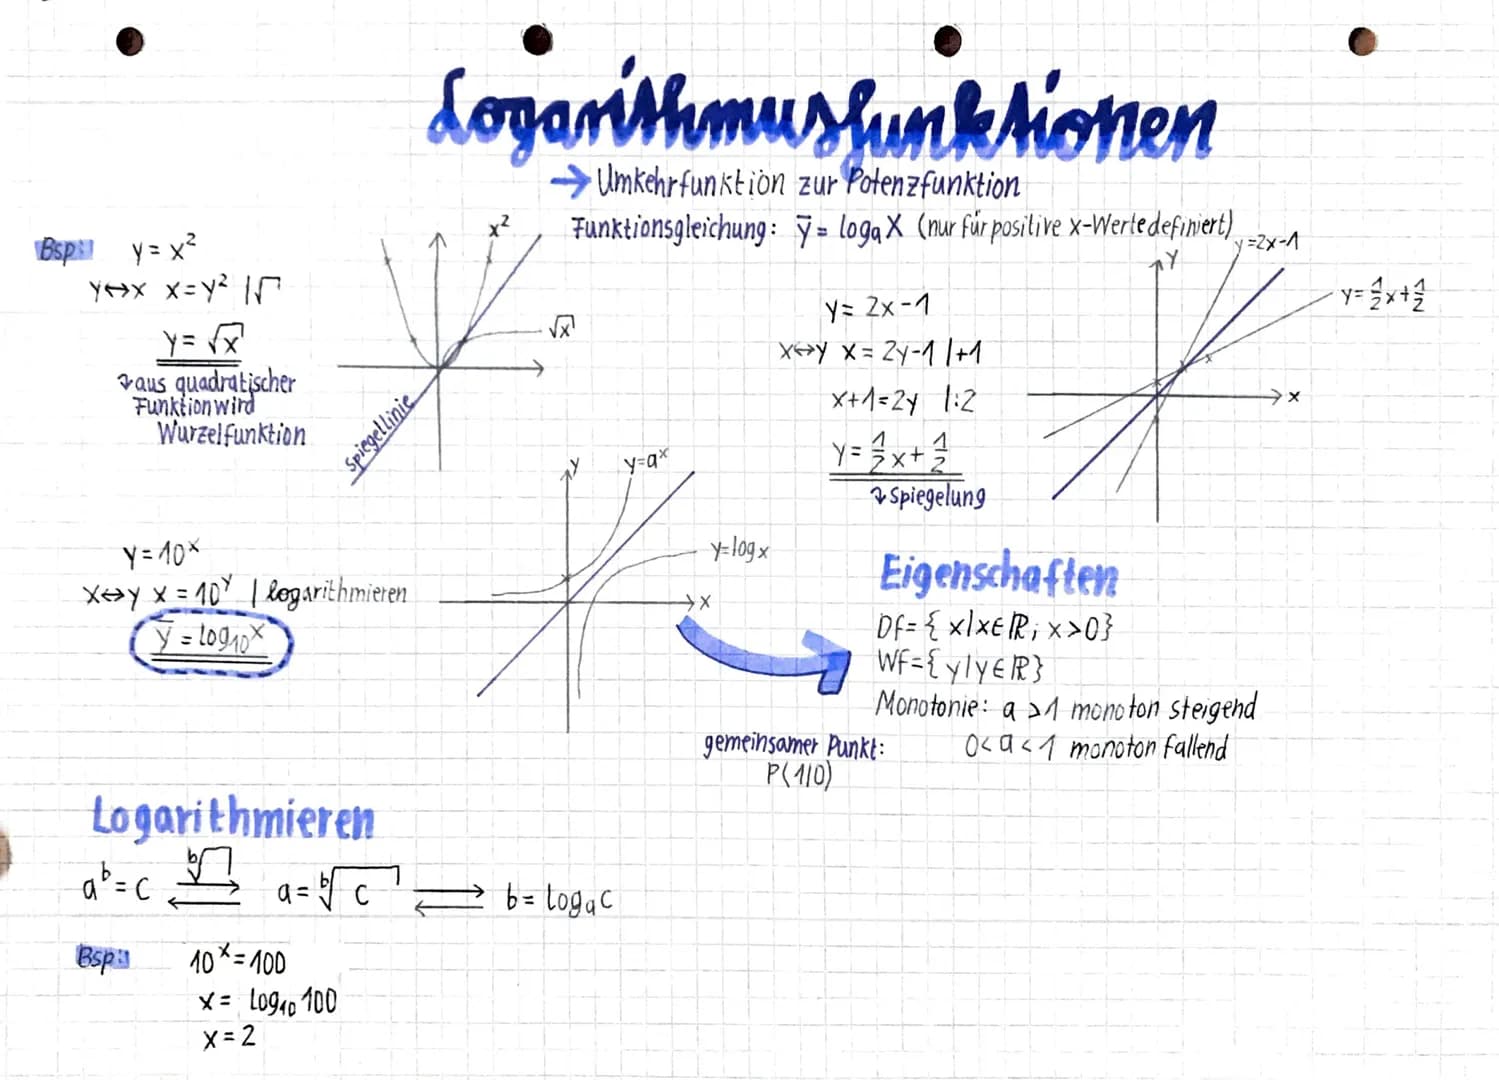 Logarithmusfunktionen
→ Umkehrfunktion zur Potenzfunktion
Funktionsgleichung: y̅ = logₐX (nur für positive x-Werte definiert)
Bsp:
y = x²
y↔x x=y² |√
y = √x
↴ aus quadratischer
Funktion wird
Wurzelfunktion
x²
√x
Spiegellinie
y = 2x-1
x↔y x = 2y-1 |+1
x+1=2y |:2
y = 1/2 x + 1/2
↴ Spiegelung
y=2x-1
Y
y= 1/2 x + 1/2
x
y=10ˣ
x↔y x = 10ʸ | logarithmieren
y̅ = log₁₀x
y
y=aˣ
y=log x
x
Eigenschaften
Df={ x|x∈ℝ; x>0}
Wf={ y|y∈ℝ}
Monotonie: a >1 monoton steigend
0<a<1 monoton fallend
gemeinsamer Punkt:
P(1|0)
Logarithmieren
aᵇ = c ᵇ√ ⇄ a = ᵇ√c ⇄ b = logₐc
Bsp:
10ˣ=100
x = log₁₀100
x = 2